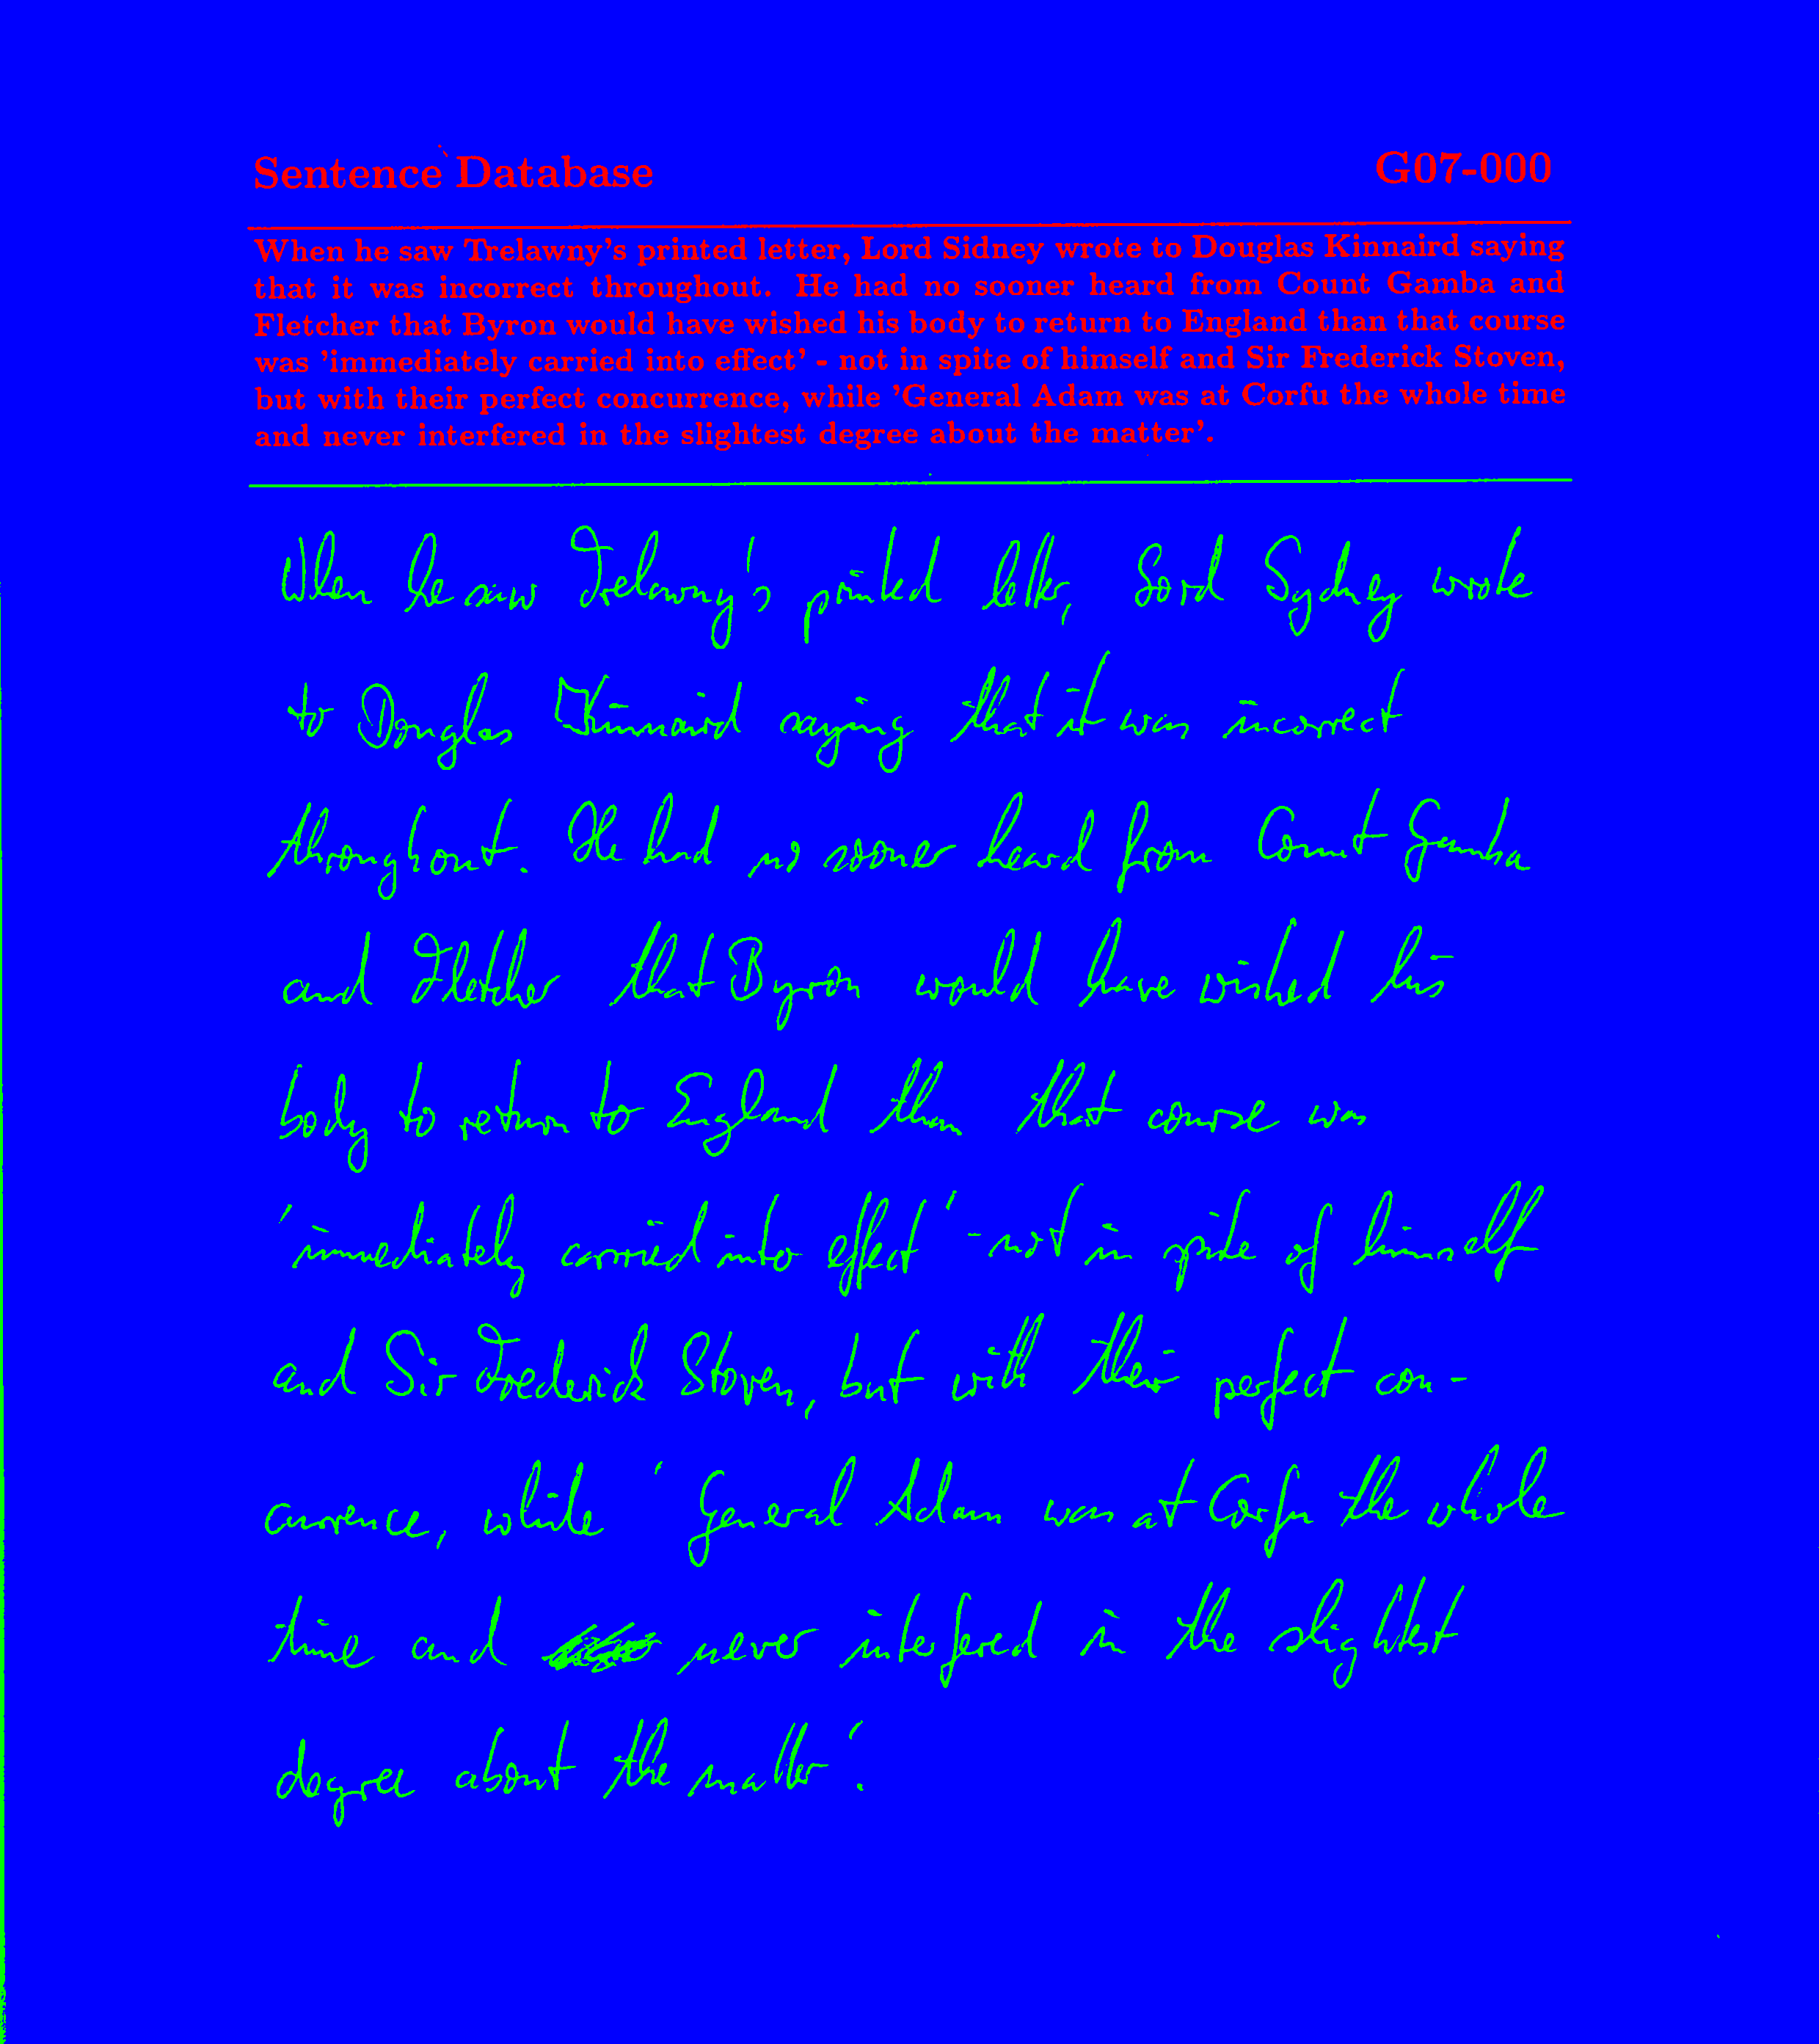 Sentence Database G07-000
When he saw Trelawny's printed letter, Lord Sidney wrote to Douglas Kinnaird saying
that it was incorrect throughout. He had no sooner heard from Count Gamba and
Fletcher that Byron would have wished his body to return to England than that course
was 'immediately carried into effect' - not in spite of himself and Sir Frederick Stoven,
but with their perfect concurrence, while 'General Adam was at Corfu the whole time
and never interfered in the slightest degree about the matter'.
When he saw Trelawny's printed letter, Lord Sydney wrote
to Douglas Kinnaird saying that it was incorrect
throughout. He had no sooner heard from Count Gamba
and Fletcher that Byron would have wished his
body to return to England than that course was
'immediately carried into effect' - not in spite of himself
and Sir Frederick Stoven, but with their perfect con-
currence, while 'General Adam was at Corfu the whole
time and never interfered in the slightest
degree about the matter'.